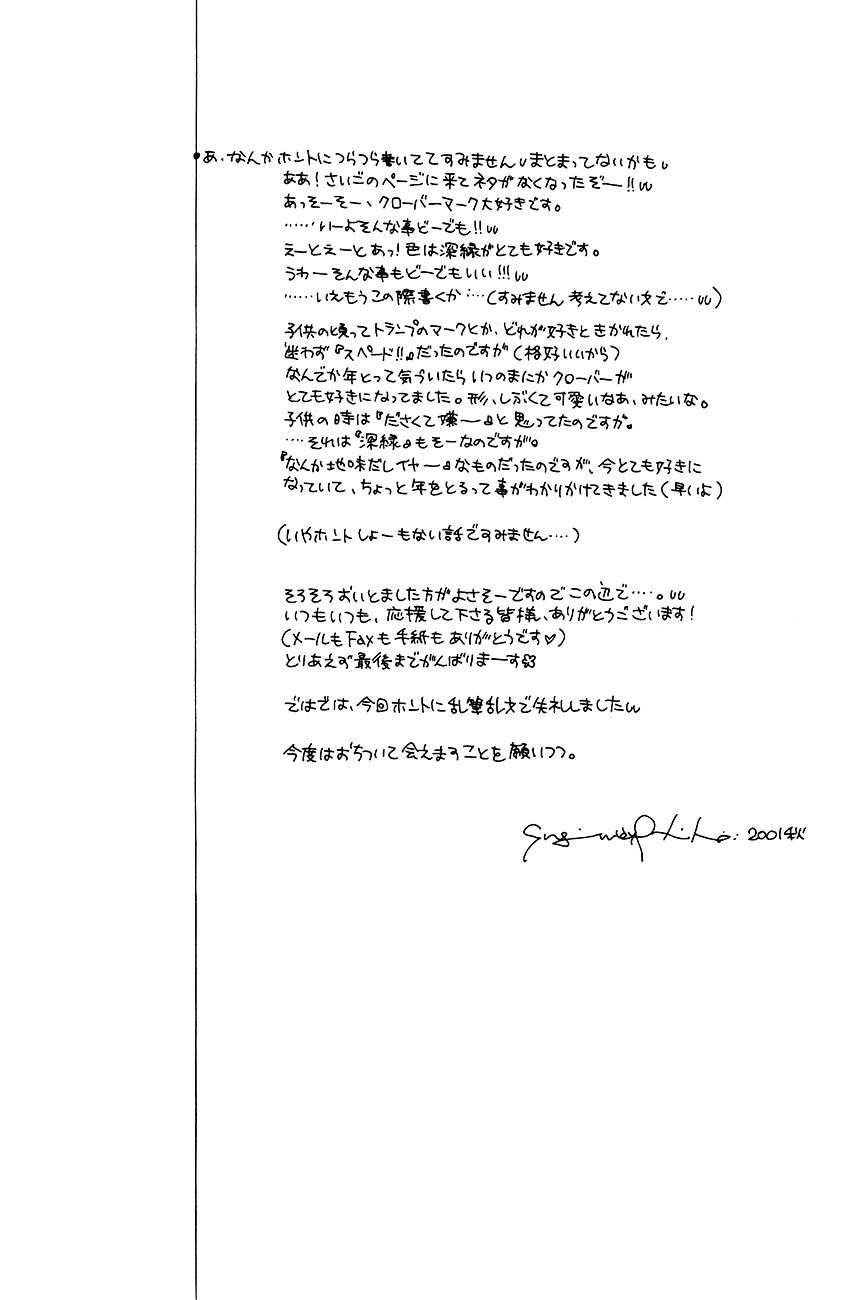 •あ、なんかホントにつらつら書いててすみません まとまってないかも
ああ!さいごのページに来てネタがなくなったぞー!!
あっそーそー、クローバーマーク大好きです。
……いーよそんな事どーでも!!
えーとえーとあっ!色は深緑がとても好きです。
うわーそんな事もどーでもいい!!!
……いえもうこの際書くか…(すみません考えてない文で……)
子供の頃ってトランプのマークとか、どれが好きときかれたら、
迷わず『スペード!!』だったのですが(格好いいから)
なんでか年とって気づいたらいつのまにかクローバーが
とても好きになってました。形、しぶくて可愛いなあ、みたいな。
子供の時は『ださくて嫌〜』と思ってたのですが。
…それは『深緑』もそーなのですが。
『なんか地味だしイヤー』なものだったのですが、今とても好きに
なっていて、ちょっと年をとるって事がわかりかけてきました(早いよ)
(いやホントしょーもない話ですみません…)
そろそろおいとました方がよさそーですのでこの辺で…。
いつもいつも、応援して下さる皆様、ありがとうございます!
(メールもFaxも手紙もありがとうです♡)
とりあえず最後までがんばりまーす
ではでは、今回ホントに乱筆乱文で失礼しました
今度はおちついて会えますことを願いつつ。
2001秋